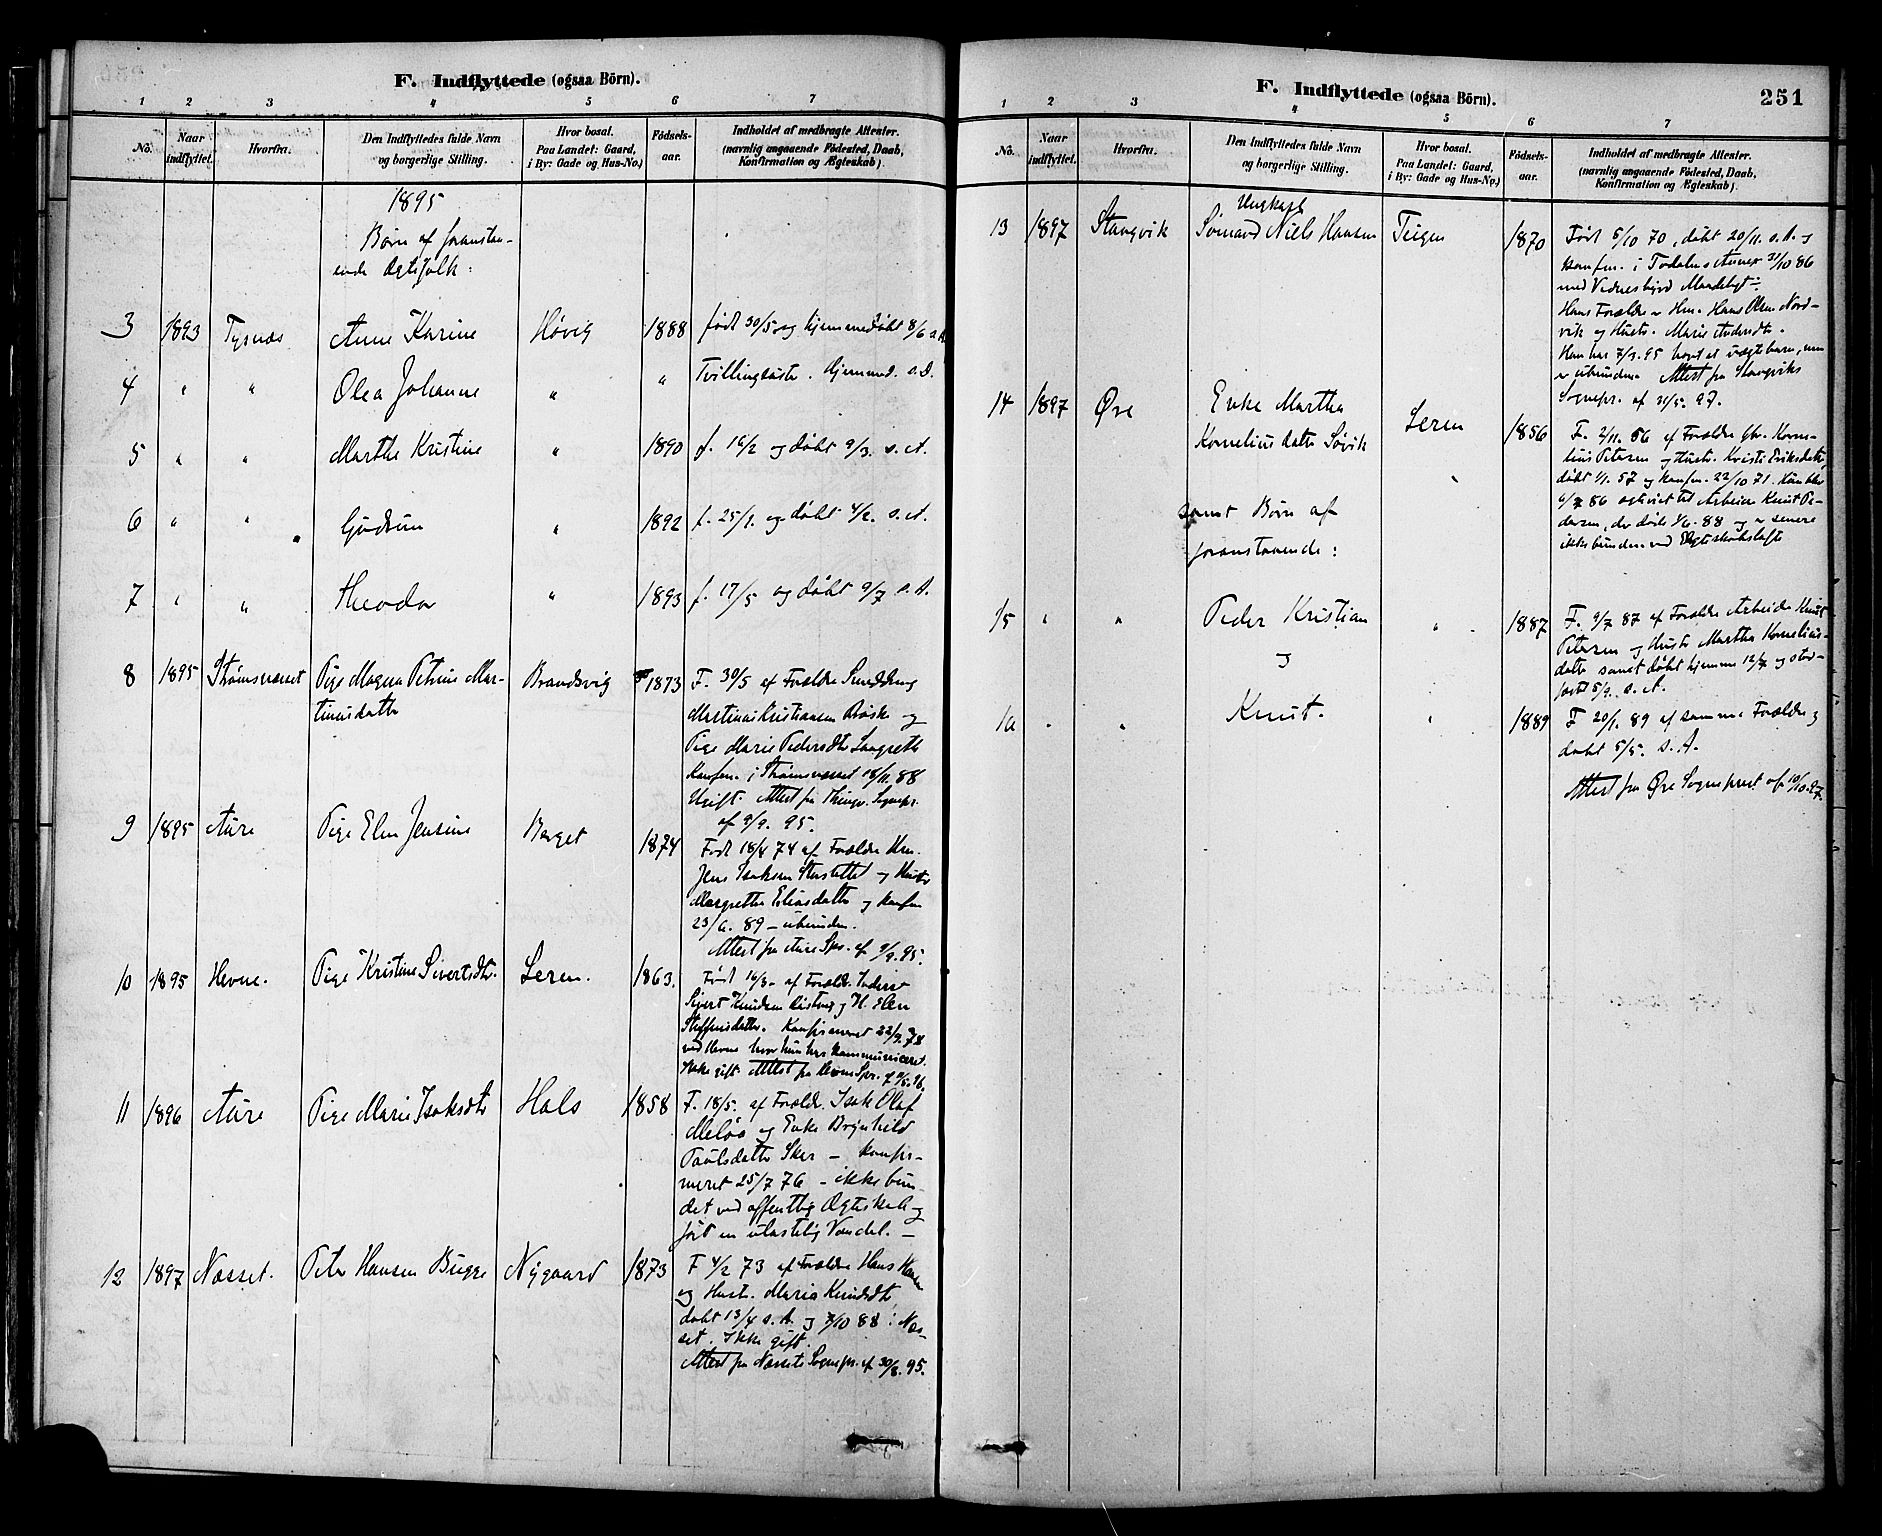 F. Indflyttede (ogsaa Börn).
1 2 3 4 5 6 7
No.
Naar indflyttet.
Hvorfra.
Den Indflyttedes fulde Navn
og borgerlige Stilling.
Hvor bosat.
Paa Landet: Gaard,
i By: Gade og Hus-No.)
Födsels-
aar.
Indholdet af medbragte Attester.
(navnlig angaaende Födested, Daab,
Konfirmation og Ægteskab).
1895
Børn af foranstaa-
ende Ægtefolk:
3 1893 Tysnæs Anne Karine Høvig 1888 født 30/5 og hjemmedøbt 8/6 s.A.
4 " " Olea Johanne " " Tvillingsøster. Hjemmed. s.D.
5 " " Marthe Kristine " 1890 f. 16/2 og døbt 9/3. s.A.
6 " " Gudrun " 1892 f. 25/1. og døbt 4/2. s.A.
7 " " Theodor " 1893 f. 17/5 og døbt 9/7 s.A.
8 1895 Strømsværret Pige Magna Petrine Mar-
tinusdatter Brandsvig 1873 F. 30/5 af Forældre
Martinus Kristiansen og
Pige Marie Pedersdtr
Konfm. i Strømsværret 18/11. 88
Ugift. Attest fra Sognepr.
af 9/9. 95.
9 1895 Aure Pige Elen Jensine Berget 1874
Født 18/4 74 af Forældre Hm.
Jens Isaksen og Hustr.
Margrethe Eliasdatter og konfm
23/6. 89 – ubunden.
Attest fra Aure Spr. af 9/9. 95.
10 1895 Hevne. Pige Kristine Sivertsdtr. Leren. 1863.
Født 16/3 – af Forældr. Inderst
Sivert Knudsen og H. Elen
Steffensdatter. Konfirmeret 22/9. 78
ved Hevne hvor hun har kommuniceret.
Ikke gift. Attest fra Hevne Spr. af 9/5. 96.
11 1896 Aure Pige Marie Isaksdtr Hals 1858 F. 18/5. af Forældr. Isak Olaf
Meløs og Enke Brynhild
Paulsdatter Sker – konfir-
meret 25/7 76 – ikke bun-
det ved offentlig Ægteskab og
ført en ulastelig Vandel. –
12 1897 Nesset. Peter Hansen Bugge Nygaard 1873 F 4/2 73 af Forældre Hans Hansen
og Hust. Marie Knudsdtr,
døbt 13/4 s.A. og 7/10 88 i Nes-
set. Ikke gift.
Attest fra Nessets Sognepr. af 30/8. 95.
F. Indflyttede (ogsaa Börn). 251
1 2 3 4 5 6 7
No.
Naar indflyttet.
Hvorfra.
Den Indflyttedes fulde Navn
og borgerlige Stilling.
Hvor bosat.
Paa Landet: Gaard,
i By: Gade og Hus-No.)
Födsels-
aar.
Indholdet af medbragte Attester.
(navnlig angaaende Födested, Daab,
Konfirmation og Ægteskab).
Ungkarl
13 1897 Stangvik Sømand Niels Hansen Teigen 1870 Født 5/10 70, døbt 20/11. s.A. og
konfm. i Todalens Annex 31/10 86
med Vidnesbyrd Maadeligt.
Hans Forældre er Hm. Hans Olsen Nord-
vik og Hustr. Marie Andersdtr.
Han har 7/3. 95 havt et uægte barn, men
er ubunden. Attest fra Stangviks
Sognepr. af 21/5. 97.
14 1897 Øre Enke Martha
Korneliusdatter Søvik Leren 1856 F. 2/11. 56 af Forældre Gbr. Korne-
lius Petersen og Hustr. Kristi Eriksdatter,
døbt 1/1. 57 og konfm. 22/10 71. Hun blev
6/7 86 ægteviet til Arbeider Knut Pe-
dersen, der døde 1/6. 88 og er senere
ikke bunden ved Ægteskabsløfte
samt Børn af
foranstaaende:
15 " " Peder Kristian " 1887 F. 9/7 87 af Forældre Arbeider Knut
Petersen og Hustr Martha Kornelius-
datter samt døbt hjemme 12/7 og stad-
fæstet 5/9. s.A.
og
16 " " Knut. " 1889 F 20/1. 89 af samme Forældre og
døbt 5/5. s.A.
Attest fra Øre Sogneprest af 10/10. 97.